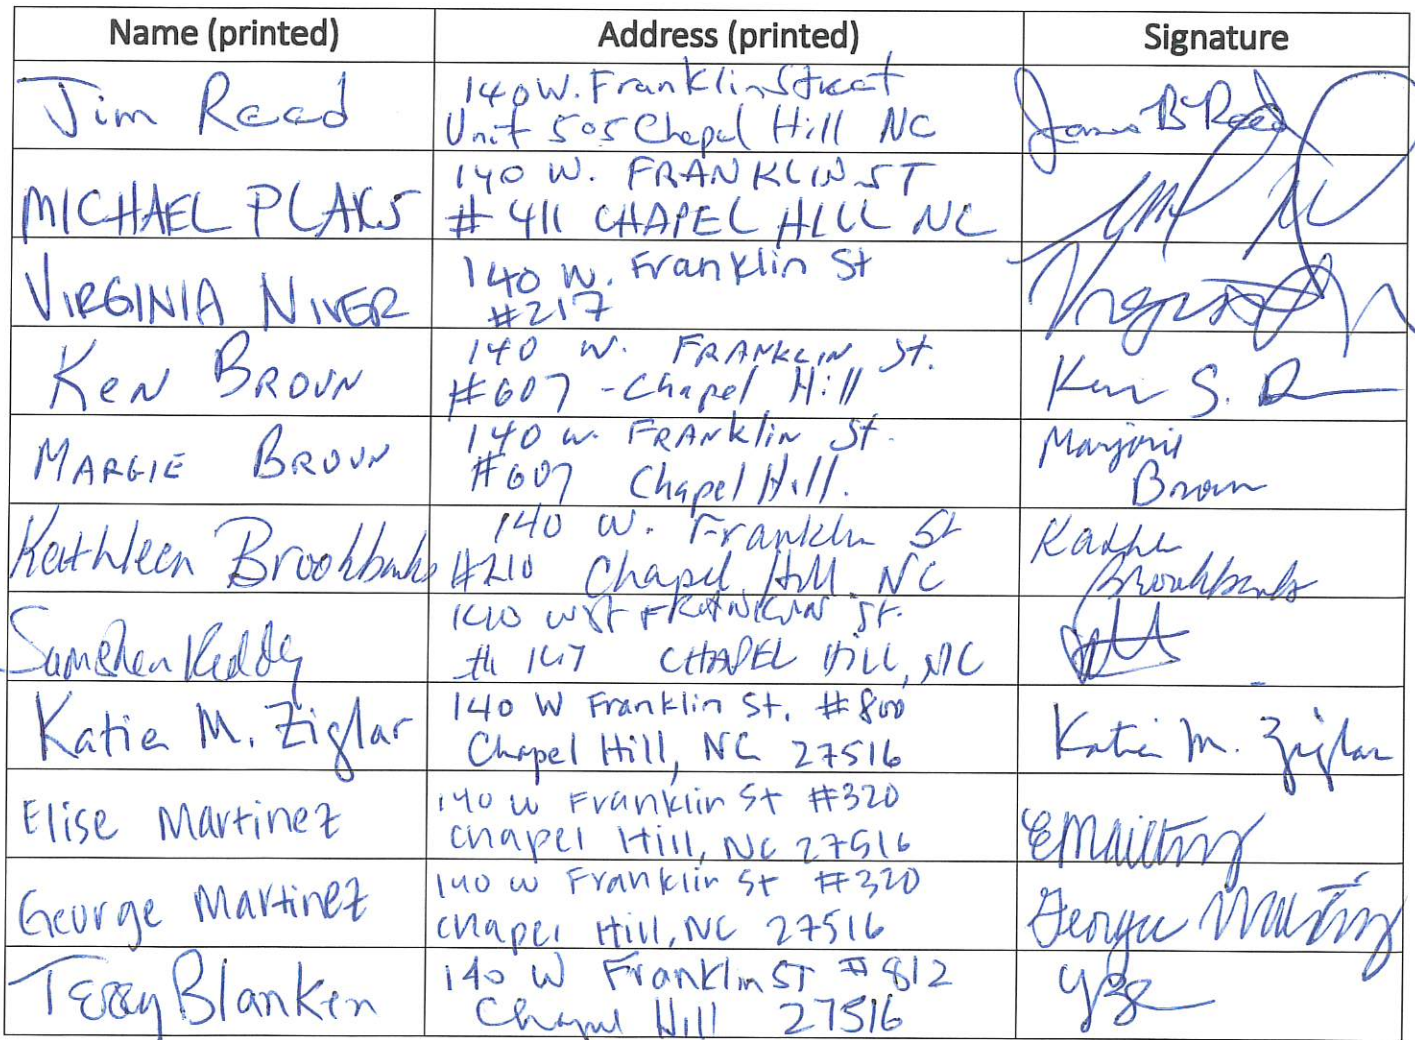 Name (printed) Address (printed) Signature
Jim Reed 140 W. Franklin Street
Unit 505 Chapel Hill NC James B Reed
MICHAEL PLAKS 140 W. FRANKLIN ST
# 411 CHAPEL HILL NC
VIRGINIA NIVER 140 W. Franklin St
#217
KEN BROUN 140 W. FRANKLIN St.
#607 - Chapel Hill Ken S.
MARGIE BROUN 140 W. FRANKlin St.
#607 Chapel Hill. Marjorie
Broun
Kathleen Brookbanks 140 W. Franklin St
#210 Chapel Hill NC
Brookbanks
Reddy 140 WEST FRANKLIN St.
CHAPEL HILL, NC
Katie M. Ziglar 140 W Franklin St. #800
Chapel Hill, NC 27516 Katie M. Ziglar
Elise Martinez 140 W Franklin St #320
Chapel Hill, NC 27516 EMartinez
George Martinez 140 W Franklin St #320
Chapel Hill, NC 27516 George Martinez
Terry Blanken 140 W Franklin ST #812
Chapel Hill 27516